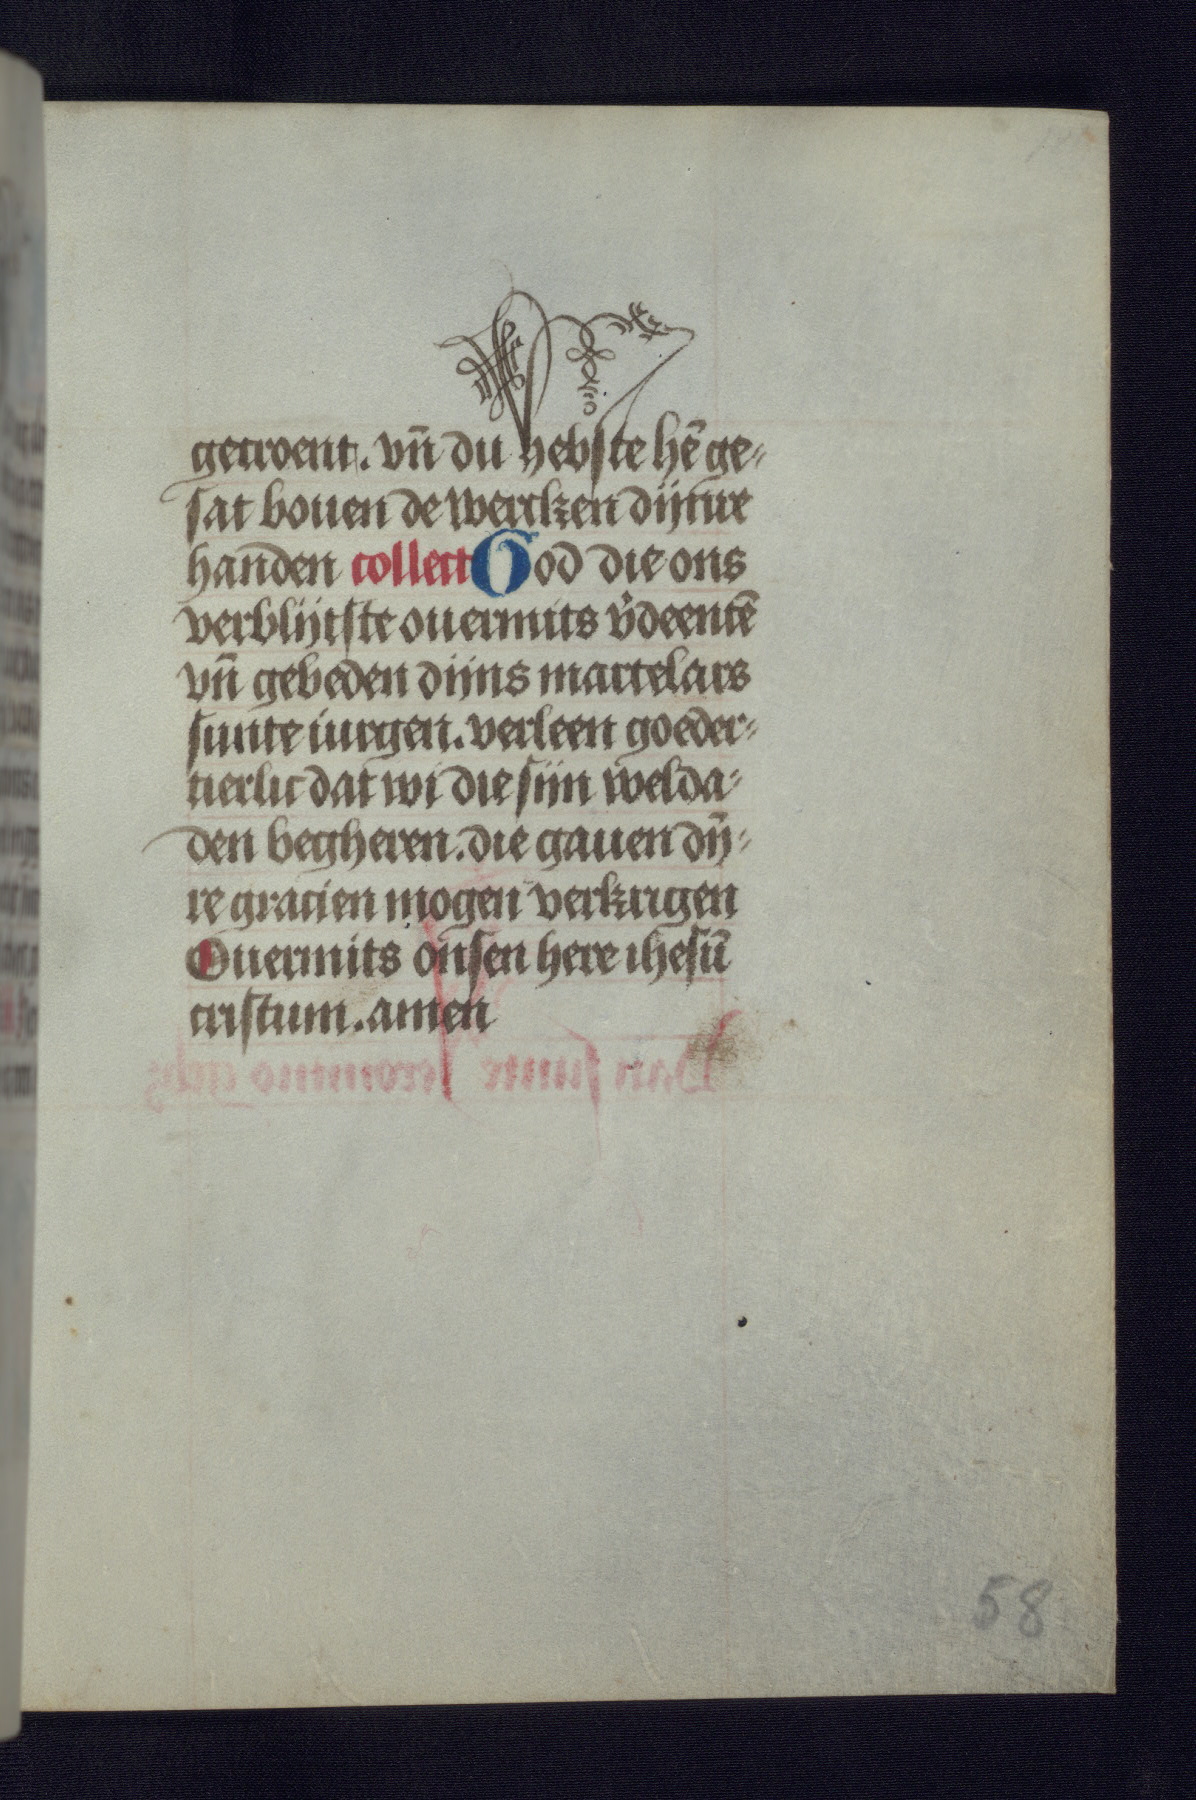 getroent. vn̄ du hebste hē ge⸗
sat bouen de wercken dijnre
handen collect God die ons
verblijtste ouermits v̉deentē
vn̄ gebeden dijns martelars
sunte iurgen. verleen goeder⸗
tierlic dat wi die sijn welda⸗
den begheren. die gauen dij̄⸗
re gracien mogen verkrigen
Ouermits onsen here ihesū
cristum. amen
58